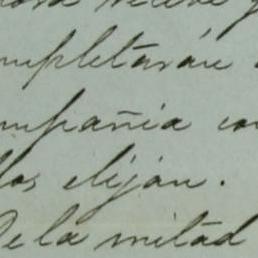 mpletarán
mpañia con
los elijan.
De la mitad